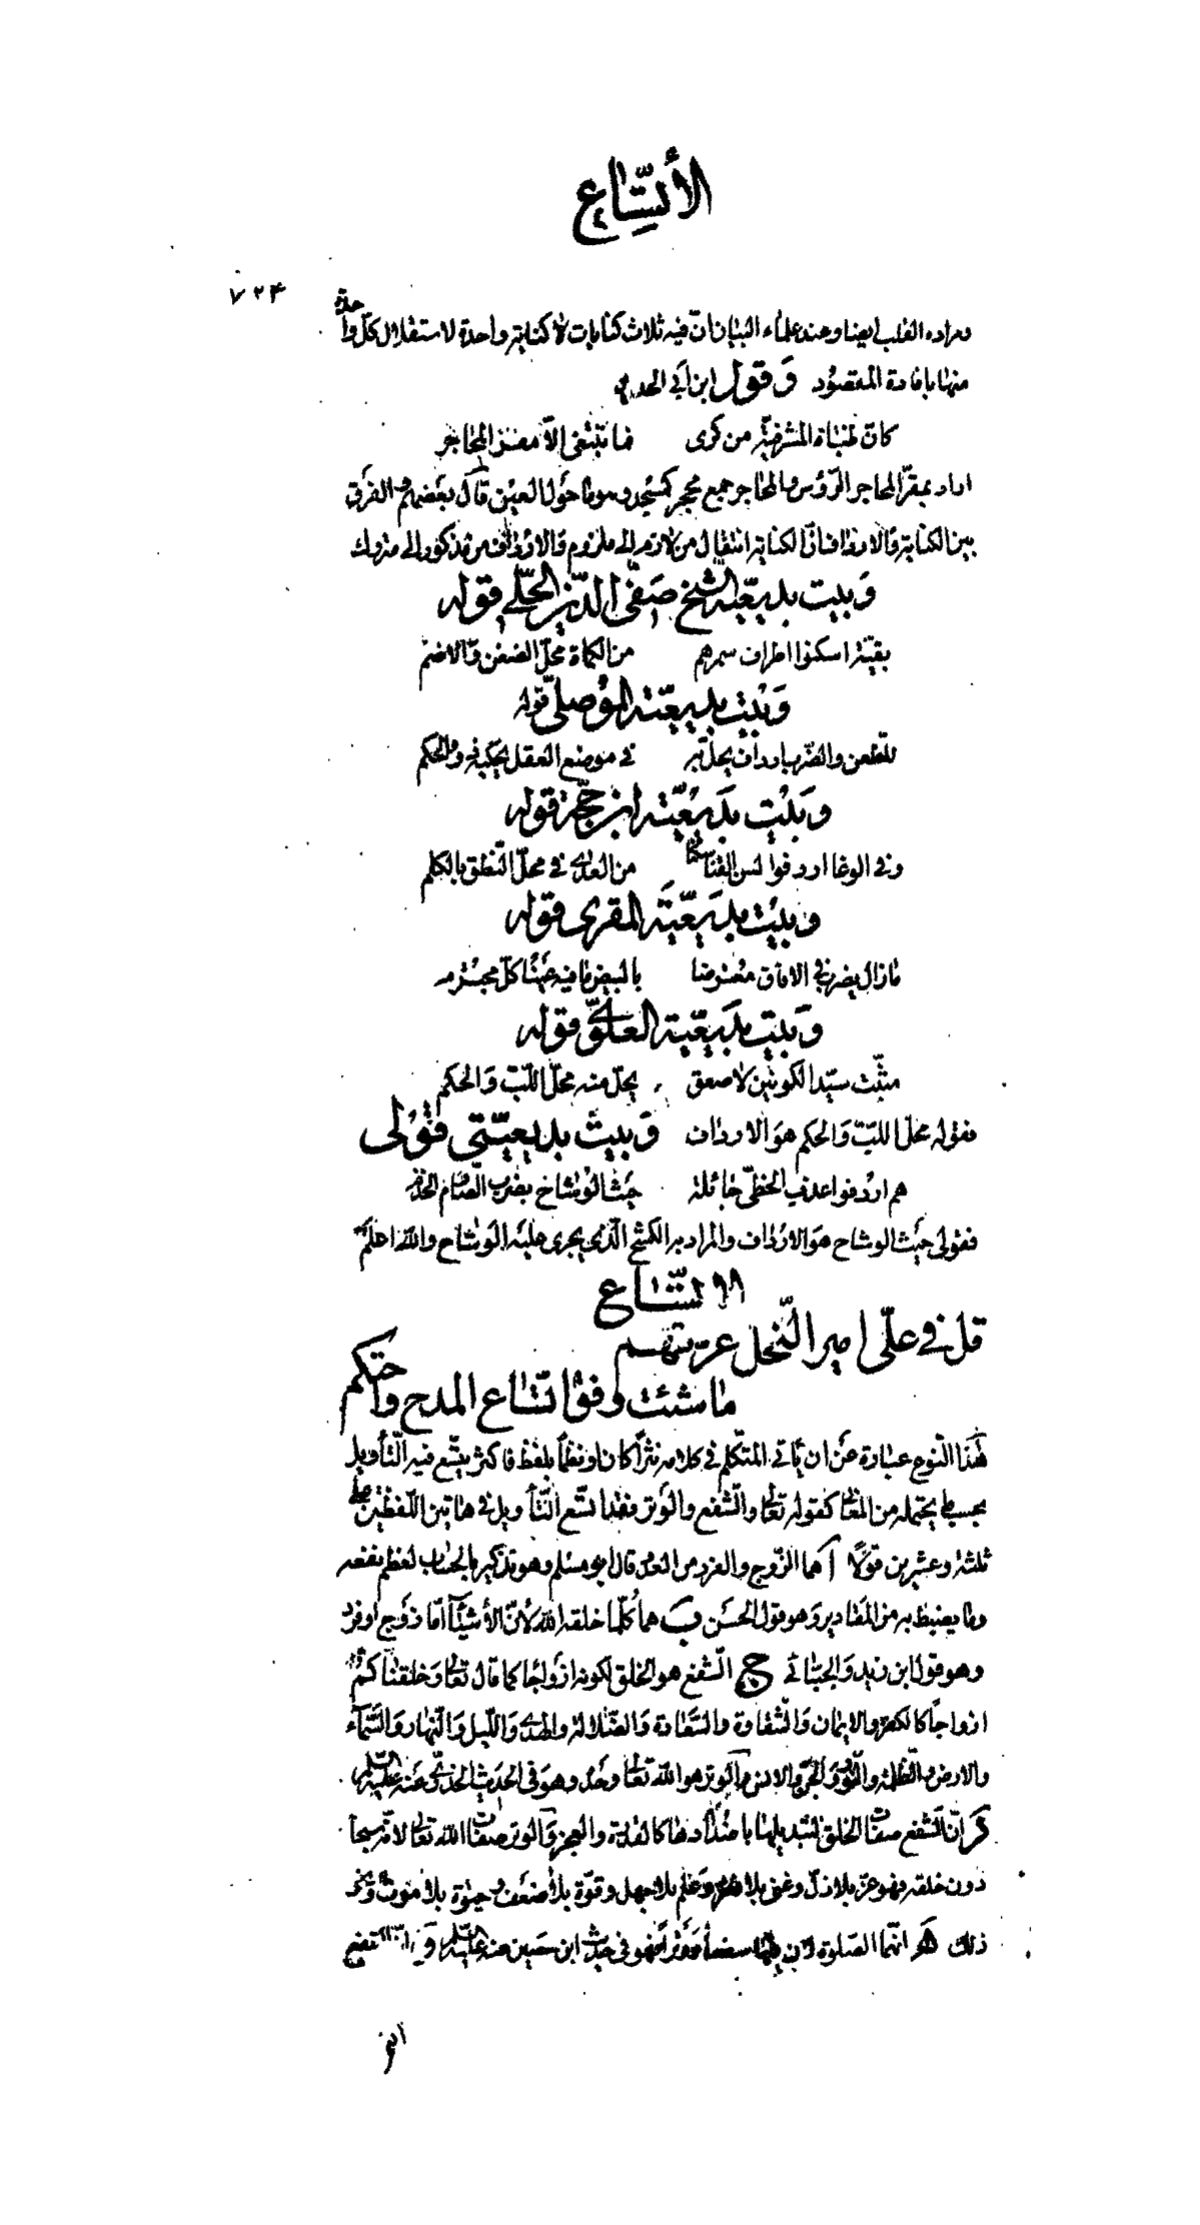 الأتّساع
٧٢٤
ومراده القلب ايضا وعند علماء البيان انّ فيه ثلاث كنايات لا كناية واحدة لاستقلال كلّ واحدة
منها بافادة المقصود وقول ابن أبي الحديد
كانّ ظباة المشرفيّة من كرى فما تبتغى الّا مقرّ المحاجر
اراد بمقرّ المحاجر الرّؤس والمحاجر جمع محجر كمسجد وهو ما حول العين قال بعضهم والفرق
بين الكناية والارداف انّ الكناية انتقال من لازم الى ملزوم والارداف من مذكور الى متروك
وبيت بديعيّة الشيخ صفيّ الدّين الحلّي قوله
بفتية اسكنوا اطراف سمرهم من الكماة محلّ الضغن والاضم
وبيت بديعيّة الموصلي قوله
للطعن والضّرب ارداف يحلّ به في موضع العقل يحكيه ذو الحكم
وبيت بديعيّة ابن حجّة قوله
وفي الوغا اردفوا لسن القنا سكنا من العدى في محلّ النّطق بالكلم
وبيت بديعيّة المقري قوله
ما زال يضرب في الافاق معترضا بالبيض ما فيه عنها كلّ مجترم
وبيت بديعية العلويّ قوله
مثبّت سيّد الكونين لا صعق يحلّ منه محلّ اللبّ والحكم
فقوله محلّ اللبّ والحكم هو الارداف وبيت بديعيّتي قولى
هم اردفوا عذب الخطّي جائلة حيث الوشاح بضرب الصّارم الخذم
فقولى حيث الوشاح هو الارداف والمراد به الكشح الّذي يجري عليه الوشاح والله اعلم
الاتّساع
قل في علّى امير النّحل عزّتهم
ما شئت وفق اتّساع المدح واحتكم
هذا النّوع عبارة عن ان يأتى المتكلّم في كلامه نثرا كان او نظما بلفظ فاكثر يتّسع فيه التّأويل
بحسب ما يحتمله من المعانى كقوله تعالى والشّفع والوتر فقد اتسع التّأويل في هاتين اللّفظتين على
ثلثة وعشرين قولا أ هما الزّوج والفرد من العدد قال ابو مسلم وهو تذكير بالحساب لعظم نفعه
وما يضبط به من المقادير وهو قول الحسن ب هما كلّما خلقه الله لأنّ الأشيآء امّا زوج او فرد
وهو قول ابن زيد والجبّائى ج الشّفع هو الخلق لكونه ازواجا كما قال تعالى وخلقناكم
ازواجا كالكفر والايمان والشّقاوة والسّعادة والضّلالة والهدى واللّيل والنّهار والسّمآء
والارض والظّلمة والنّور والجنّ والانس والوتر هو الله تعالى وحده وهو في الحديث الخدريّ عنه عليه السّلم
د انّ الشّفع صفات الخلق لتبديلها باضدادها كالقدرة والعجز والوتر صفات الله تعالى لانّه سبحانه
دون خلقه فهو عزّ بلا ذلّ وغنى بلا فقر وعلم بلا جهل وقوّة بلا ضعف وحيوة بلا موت ونحو
ذلك ه انّهما الصّلوة لأن منها شفعا ووترا فهو في حديث ابن حصين عنه عليه السّلم و انّ الشفع
النّحر